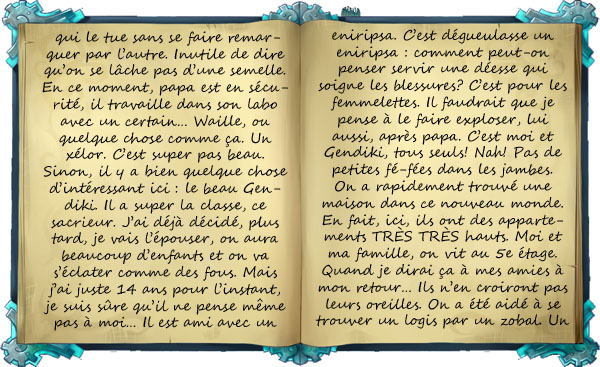 qui le tue sans se faire remar-
quer par l'autre. Inutile de dire
qu'on se lâche pas d'une semelle.
En ce moment, papa est en sécu-
rité, il travaille dans son labo
avec un certain... Waille, ou
quelque chose comme ça. Un
xélor. C'est super pas beau.
Sinon, il y a bien quelque chose
d'intéressant ici : le beau Gen-
diki. Il a super la classe, ce
sacrieur. J'ai déjà décidé, plus
tard, je vais l'épouser, on aura
beaucoup d'enfants et on va
s'éclater comme des fous. Mais
j'ai juste 14 ans pour l'instant,
je suis sûre qu'il ne pense même
pas à moi... Il est ami avec un
eniripsa. C'est dégueulasse un
eniripsa : comment peut-on
penser servir une déesse qui
soigne les blessures? C'est pour les
femmelettes. Il faudrait que je
pense à le faire exploser, lui
aussi, après papa. C'est moi et
Gendiki, tous seuls! Nah! Pas de
petites fé-fées dans les jambes.
On a rapidement trouvé une
maison dans ce nouveau monde.
En fait, ici, ils ont des apparte-
ments TRÈS TRÈS hauts. Moi et
ma famille, on vit au 5e étage.
Quand je dirai ça à mes amies à
mon retour... Ils n'en croiront pas
leurs oreilles. On a été aidé à se
trouver un logis par un zobal. Un